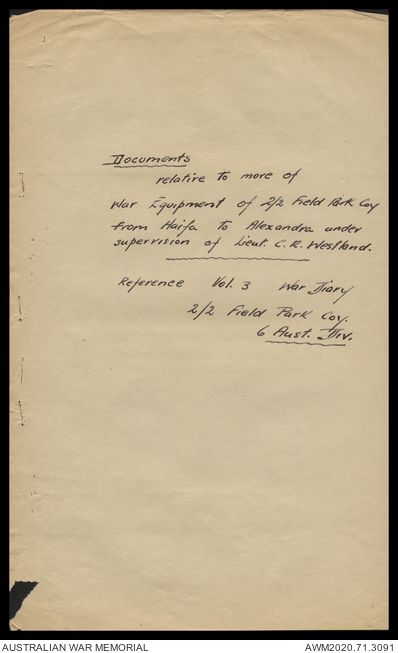 Documents
relative to more of
War Equipment of 2/2 Field Park Coy
from Haifa to Alexandra under
supervision of Lieut. C.R. Westland.
Reference Vol. 3 War Diary
2/2 Field Park Coy.
6 Aust. Div.
AUSTRALIAN WAR MEMORIAL
AWM2020.71.3091